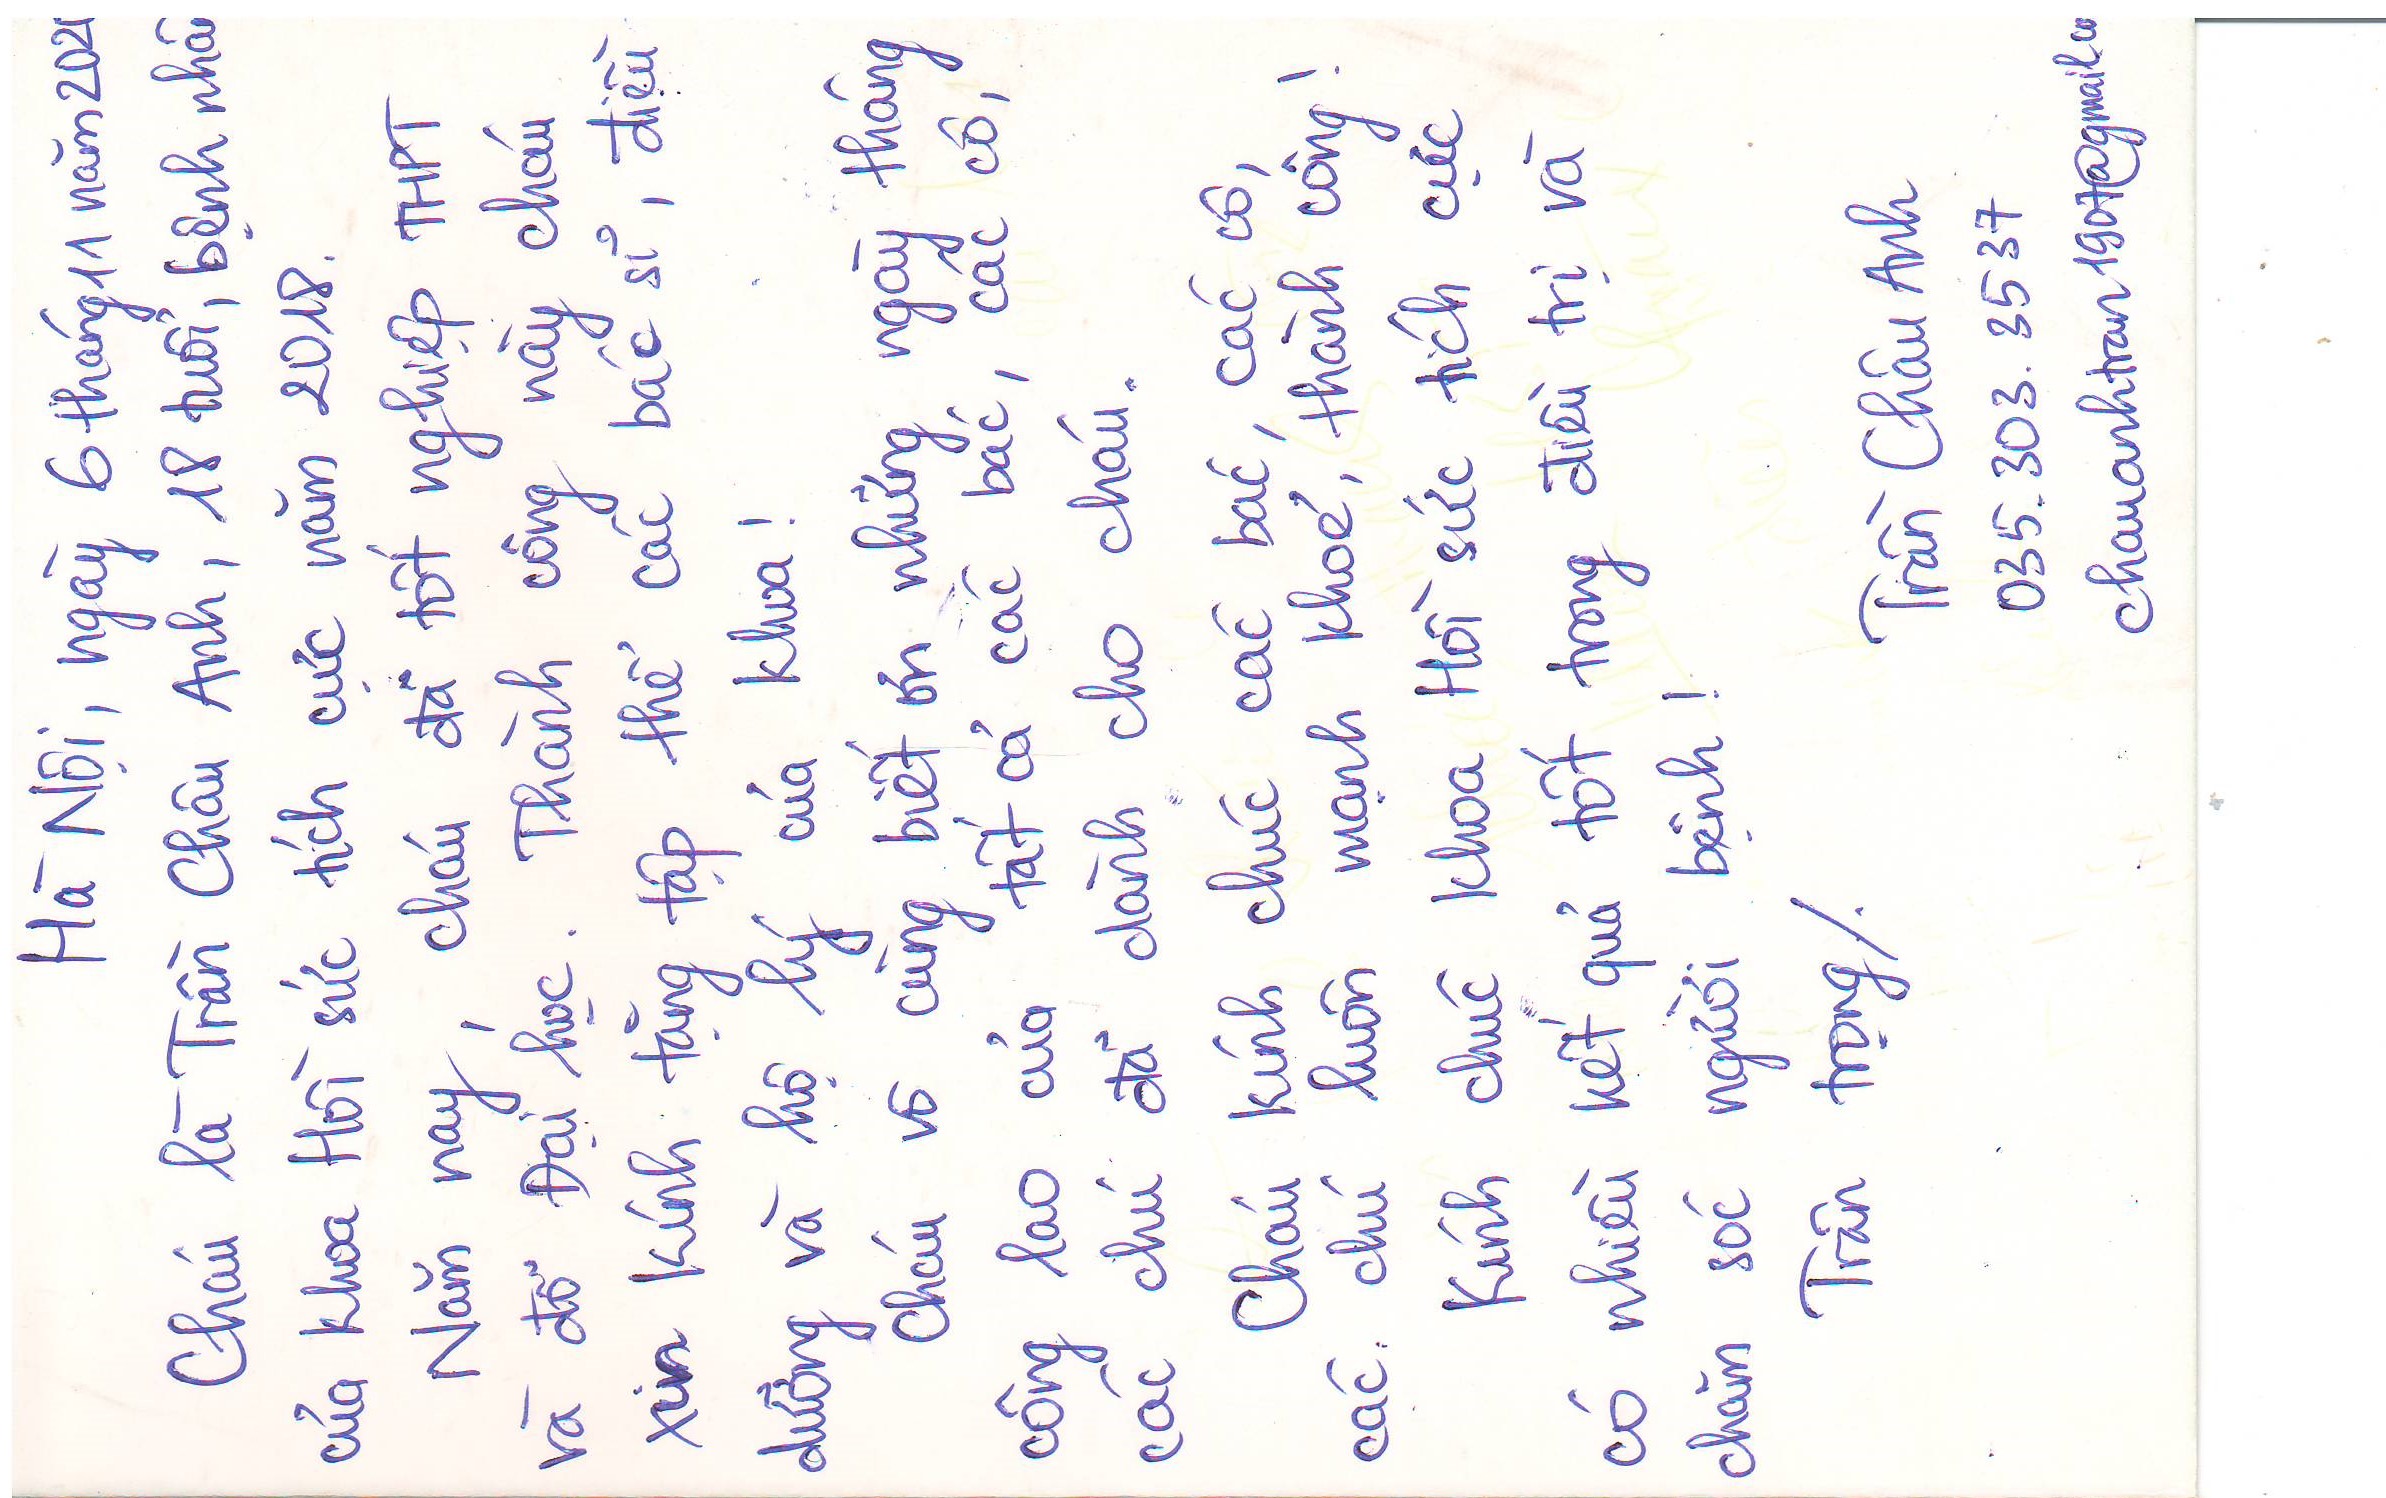 Hà Nội, ngày 6 tháng 11 năm 202
Cháu là Trần Châu Anh, 18 tuổi, bệnh nhân
của khoa Hồi sức tích cực năm 2018.
Năm nay, cháu đã tốt nghiệp THPT
và đỗ Đại học. Thành công này cháu
xin kính tặng tập thể các bác sĩ, điều
dưỡng và hộ lý của khoa!
Cháu vô cùng biết ơn những ngày tháng
công lao của tất cả các bác, các cô,
các chú đã dành cho cháu.
Cháu kính chúc các bác, các cô,
các chú luôn mạnh khoẻ, thành công!
Kính chúc khoa Hồi sức tích cực
có nhiều kết quả tốt trong điều trị và
chăm sóc người bệnh!
Trân trọng/.
Trần Châu Anh
035.303.3537
chauanhtran1907@gmail.co